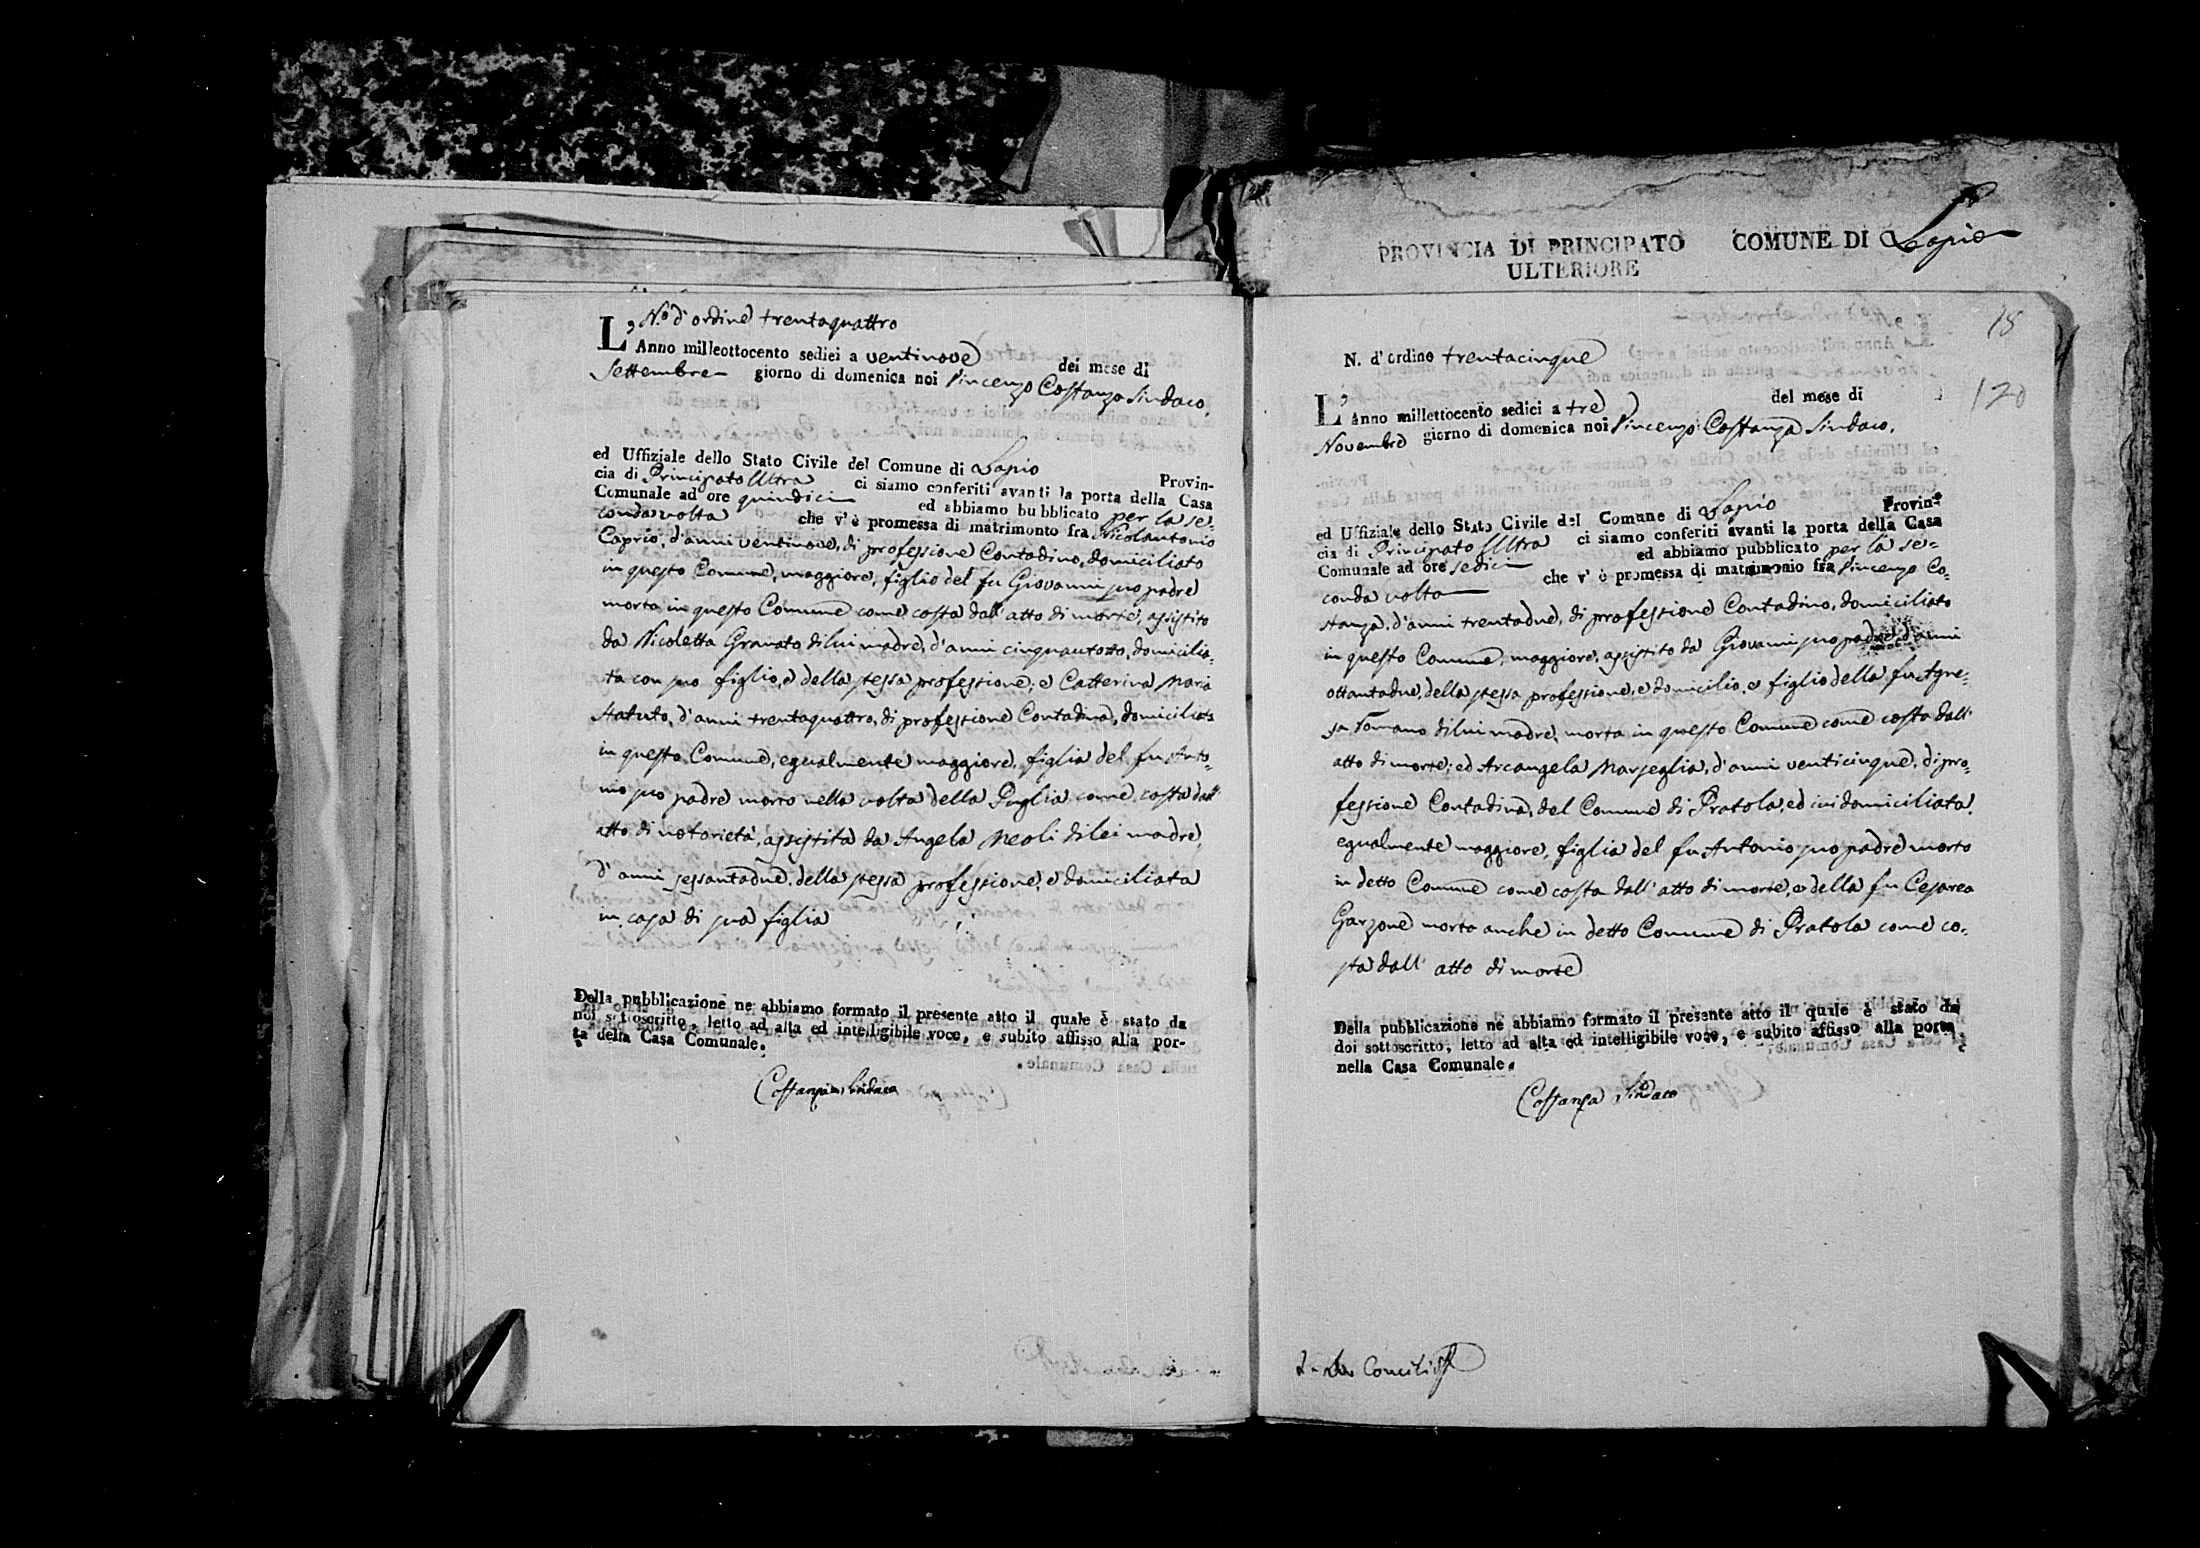 N.º d'ordine trentaquattro
L'Anno milleottocento sedici a ventinove del mese di
Settembre giorno di domenica noi Vincenzo Costanza Sindaco,
ed Uffiziale dello Stato Civile del Comune di Lapio Provin-
cia di Principato Ultra ci siamo conferiti avanti la porta della Casa
Comunale ad ore quindici ed abbiamo bubblicato per la se=
conda volta che v' è promessa di matrimonto fra Nicolantonio
Caprio, d'anni ventinove, di professione Contadino, domiciliato
in questo Comune, maggiore, figlio del fu Giovanni suo padre
morto in questo Comune come costa dall'atto di morte, assistito
da Nicoletta Granato di lui madre, d'anni cinquantotto, domicilia=
ta con suo figlio, e della stessa professione; e Catterina Maria
Statuto, d'anni trentaquattro, di professione Contadina, domiciliata
in questo Comune, egualmente maggiore, figlia del fu Anto=
nio suo padre morto nella volta della Puglia come costa dall'
atto di notorietà, assistita da Angela Meoli di lei madre,
d'anni sessantadue, della stessa professione, e domiciliata
in casa di sua figlia
Della pubblicazione ne abbiamo formato il presente atto il quale è stato da
noi sottoscritto, letto ad alta ed intelligibile voce, e subito affisso alla por-
ta della Casa Comunale.
Costanza Sindaco
PROVINCIA DI PRINCIPATO COMUNE DI Lapio
ULTERIORE
18
N. d'ordine trentacinque
120
L'Anno millettocento sedici a tre del mese di
Novembre giorno di domenica noi Vincenzo Costanza Sindaco,
ed Uffiziale dello Stato Civile del Comune di Lapio Provin-
cia di Principato Ultra ci siamo conferiti avanti la porta della Casa
Comunale ad ore sedici ed abbiamo pubblicato per la se=
conda volta che v' è promessa di matrimonio fra Vincenzo Co=
stanza, d'anni trentadue, di professione Contadino, domiciliato
in questo Comune, maggiore, assistito da Giovanni suo padre, d'anni
ottantadue, della stessa professione, e domicilio, e figlio della fu Agne=
sa Romano di lui madre, morta in questo Comune come costa dall'
atto di morte; ed Arcangela Marseglia, d'anni venticinque, di pro=
fessione Contadina, del Comune di Pratola, ed ivi domiciliata,
egualmente maggiore, figlia del fu Antonio suo padre morto
in detto Comune come costa dall'atto di morte, e della fu Cesarea
Garzone morta anche in detto Comune di Pratola come co=
sta dall'atto di morte
Della pubblicazione ne abbiamo formato il presente atto il quale è stato da
doi sottoscritto, letto ad alta ed intelligibile voce, e subito affisso alla porta
nella Casa Comunale.
Costanza Sindaco